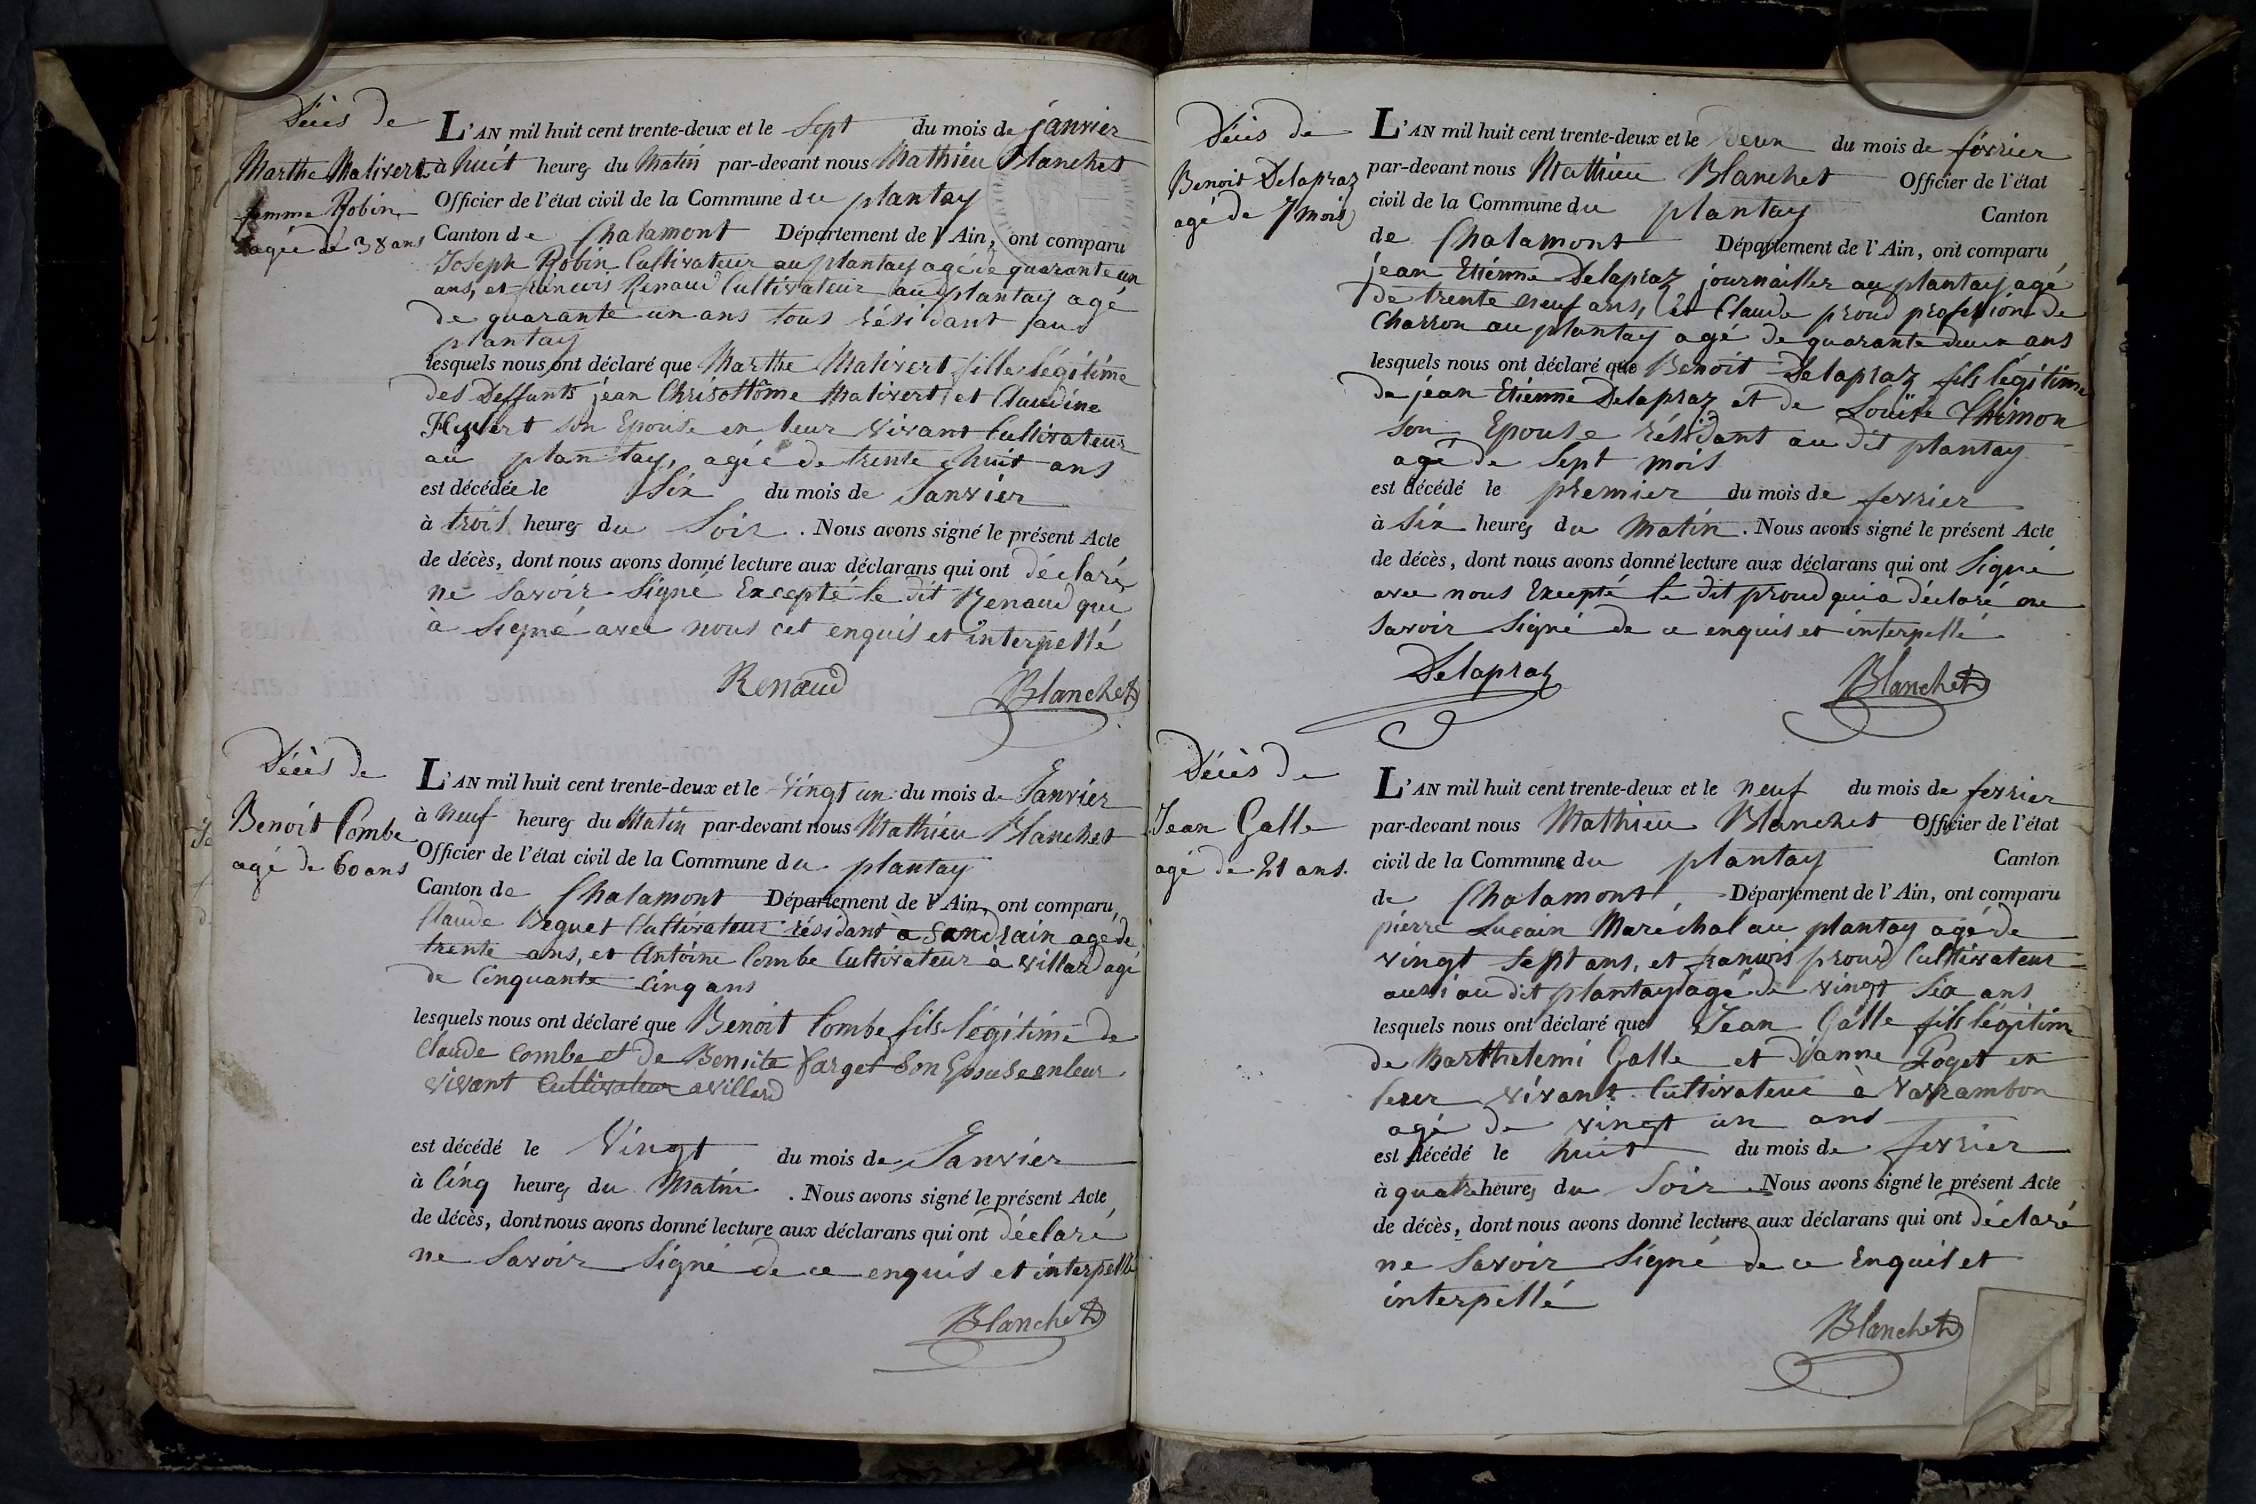 Décès de
Marthe Malivert
femme Robin
agée de 38 ans
L'AN mil huit cent trente-deux et le Sept du mois de janvier
à huit heures du Matin par-devant nous Mathieu Blanchet
Officier de l'état civil de la Commune du plantay
Canton de Chalamont Département de l'Ain, ont comparu
Joseph Robin Cultivateur au plantay agé de quarante un
ans, et francois Renaud Cultivateur au plantay agé
de quarante un ans tous résidant au
plantay
lesquels nous ont déclaré que Marthe Malivert fille légitime
des Deffunts jean Chrisottôme Malivert et Claudine
son Epouse en leur vivant Cultivateur
au plantay, agée de trente huit ans
est décédée le Six du mois de Janvier
à trois heures du Soir. Nous avons signé le présent Acte
de décès, dont nous avons donné lecture aux déclarans qui ont déclaré
ne Savoir Signé Excepté le dit Renaud qui
à Signé avec nous cet enquis et interpellé
Renaud Blanchet
Décès de
Benoit Combe
agé de 60 ans
L'AN mil huit cent trente-deux et le Vingt un du mois de Janvier
à Neuf heures du Matin par-devant nous Mathieu Blanchet
Officier de l'état civil de la Commune du plantay
Canton de Chalamont Département de l'Ain, ont comparu
Claude Beguet Cultivateur résidant à Sandrain agé de
trente ans, et Antoine Combe Cultivateur à Villard agé
de Cinquante Cinq ans
lesquels nous ont déclaré que Benoit Combe fils légitime de
Claude Combe et de Benoite Farget Son Epouse en leur
vivant Cultivateur a villard
est décédé le Vingt du mois de Janvier
à Cinq heures du Matin. Nous avons signé le présent Acte
de décès, dont nous avons donné lecture aux déclarans qui ont déclaré
ne Savoir Signé de ce enquis et interpellé
Blanchet
Décès de
Benoit Delapraz
agé de 7 mois
L'AN mil huit cent trente-deux et le deux du mois de février
par-devant nous Mathieu Blanchet Officier de l'état
civil de la Commune du plantay Canton
de Chalamont Département de l'Ain, ont comparu
jean Etiénne Delapraz journailler au plantay agé
de trente neuf ans, et Claude proud profession de
Charron au plantay agé de quarante deux ans
lesquels nous ont déclaré que Benoit Delapraz fils légitime
de jean Etiénne Delapraz et de Louise Thimon
son Epouse résidant au dit plantay
agé de Sept mois
est décédé le premier du mois de fevrier
à Six heures du Matin. Nous avons signé le présent Acte
de décès, dont nous avons donné lecture aux déclarans qui ont Signé
avec nous Excepté le dit proud qui a déclaré ne
Savoir Signé de ce enquis et interpellé
Delapraz Blanchet
Décès de
Jean Galle
agé de 21 ans.
L'AN mil huit cent trente-deux et le neuf du mois de fevrier
par-devant nous Mathieu Blanchet Officier de l'état
civil de la Commune du plantay Canton
de Chalamont Département de l'Ain, ont comparu
pierre Lucain Maréchal au plantay agé de
vingt Sept ans, et francois proud Cultivateur
aussi au dit plantay agé de vingt Six ans
lesquels nous ont déclaré que Jean Galle fils légitime
de Barthelemi Galle et d'anne Poget en
leur vivant Cultivateur à Varrambon
agé de vingt un ans
est décédé le huit du mois de fevrier
à quatre heures du Soir. Nous avons signé le présent Acte
de décès, dont nous avons donné lecture aux déclarans qui ont déclaré
ne Savoir Signé de ce Enquis et
interpellé
Blanchet